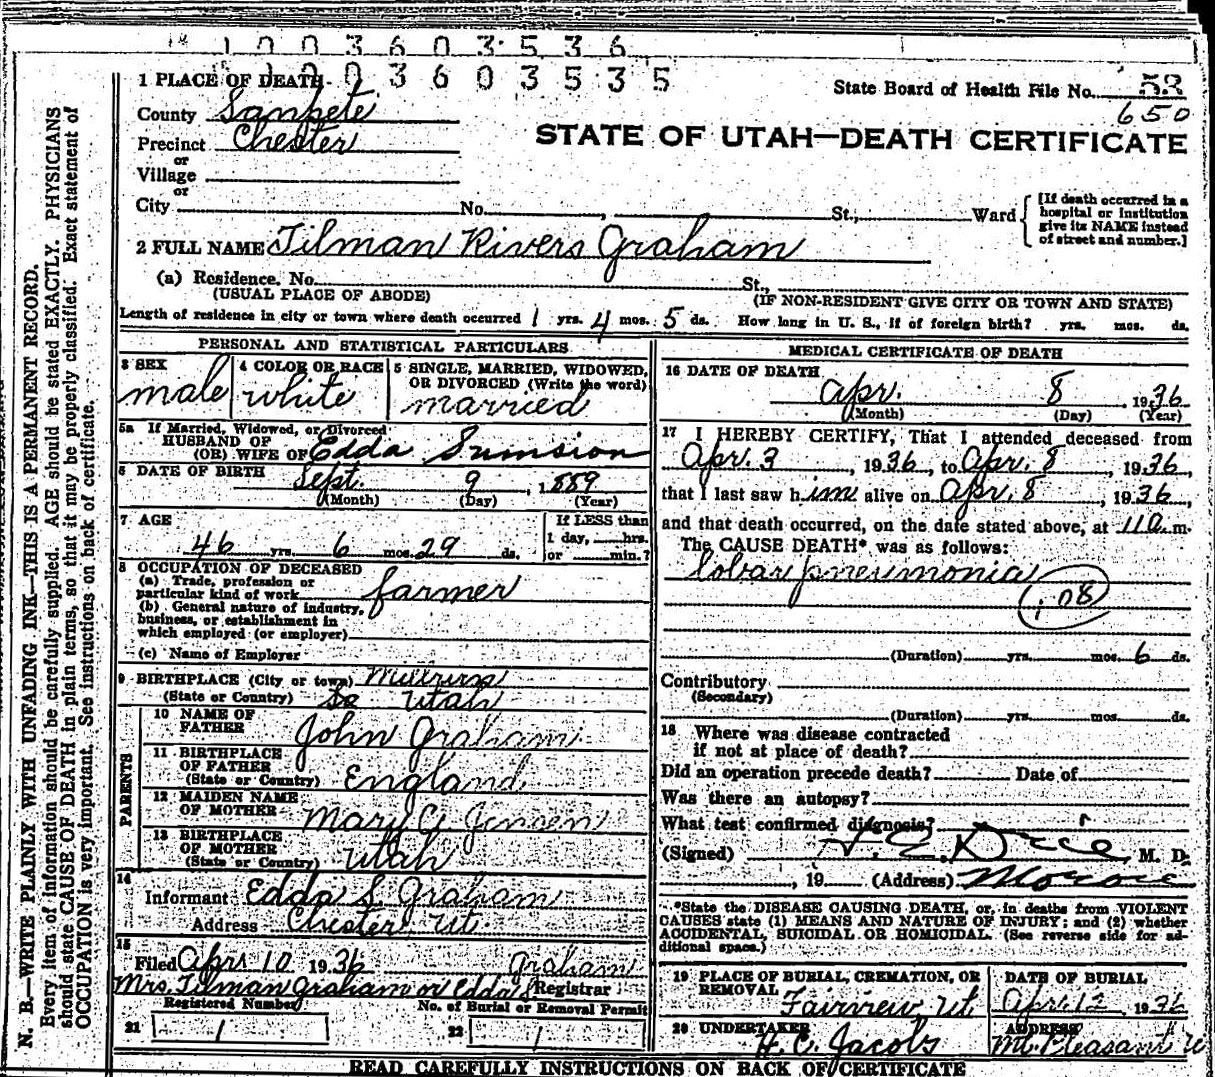 1003603536
1003603535
1 PLACE OF DEATH
State Board of Health File No. 53
650
County Sanpete
STATE OF UTAH—DEATH CERTIFICATE
Precinct Chester
or
Village
or
City No. , St., Ward
[If death occurred in a
hospital or institution
give its NAME instead
of street and number.]
2 FULL NAME Tilman Rivers Graham
(a) Residence. No. St.,
(USUAL PLACE OF ABODE) (IF NON-RESIDENT GIVE CITY OR TOWN AND STATE)
Length of residence in city or town where death occurred 1 yrs. 4 mos. 5 ds. How long in U. S., if of foreign birth? yrs. mos. ds.
PERSONAL AND STATISTICAL PARTICULARS
3 SEX male
4 COLOR OR RACE white
5 SINGLE, MARRIED, WIDOWED,
OR DIVORCED (Write the word)
married
5a If Married, Widowed, or Divorced
HUSBAND OF
(OR) WIFE OF Edda Sumsion
6 DATE OF BIRTH Sept. 9, 1889
(Month) (Day) (Year)
7 AGE
46 yrs. 6 mos. 29 ds.
If LESS than
1 day, hrs.
or min.?
8 OCCUPATION OF DECEASED
(a) Trade, profession or
particular kind of work farmer
(b) General nature of industry,
business, or establishment in
which employed (or employer)
(c) Name of Employer
9 BIRTHPLACE (City or town)
(State or Country) Utah
PARENTS
10 NAME OF
FATHER John Graham
11 BIRTHPLACE
OF FATHER
(State or Country) England
12 MAIDEN NAME
OF MOTHER Mary Jensen
13 BIRTHPLACE
OF MOTHER
(State or Country) Utah
14
Informant Edda S. Graham
Address Chester Ut.
15
Filed Apr 10 1936 Graham
Mrs. Tilman Graham or Edda S Registrar
Registered Number No. of Burial or Removal Permit
21 1 22 1
MEDICAL CERTIFICATE OF DEATH
16 DATE OF DEATH
Apr. 8 1936
(Month) (Day) (Year)
17 I HEREBY CERTIFY, That I attended deceased from
Apr. 3, 1936, to Apr. 8, 1936,
that I last saw him alive on Apr. 8, 1936,
and that death occurred, on the date stated above, at 11 a.m.
The CAUSE DEATH* was as follows:
lobar pneumonia
108
(Duration) yrs. mos. 6 ds.
Contributory
(Secondary)
(Duration) yrs. mos. ds.
18 Where was disease contracted
if not at place of death?
Did an operation precede death? Date of
Was there an autopsy?
What test confirmed diagnosis?
(Signed) M. D.
, 19 (Address) Moroni
*State the DISEASE CAUSING DEATH, or, in deaths from VIOLENT
CAUSES state (1) MEANS AND NATURE OF INJURY; and (2) whether
ACCIDENTAL, SUICIDAL OR HOMICIDAL. (See reverse side for ad-
ditional space.)
19 PLACE OF BURIAL, CREMATION, OR
REMOVAL Fairview, Ut
DATE OF BURIAL
Apr. 12 1936
20 UNDERTAKER
H. C. Jacobs
ADDRESS
Mt. Pleasant U
READ CAREFULLY INSTRUCTIONS ON BACK OF CERTIFICATE
N. B.—WRITE PLAINLY WITH UNFADING INK—THIS IS A PERMANENT RECORD.
Every item of information should be carefully supplied. AGE should be stated EXACTLY. PHYSICIANS
should state CAUSE OF DEATH in plain terms, so that it may be properly classified. Exact statement of
OCCUPATION is very important. See instructions on back of certificate.